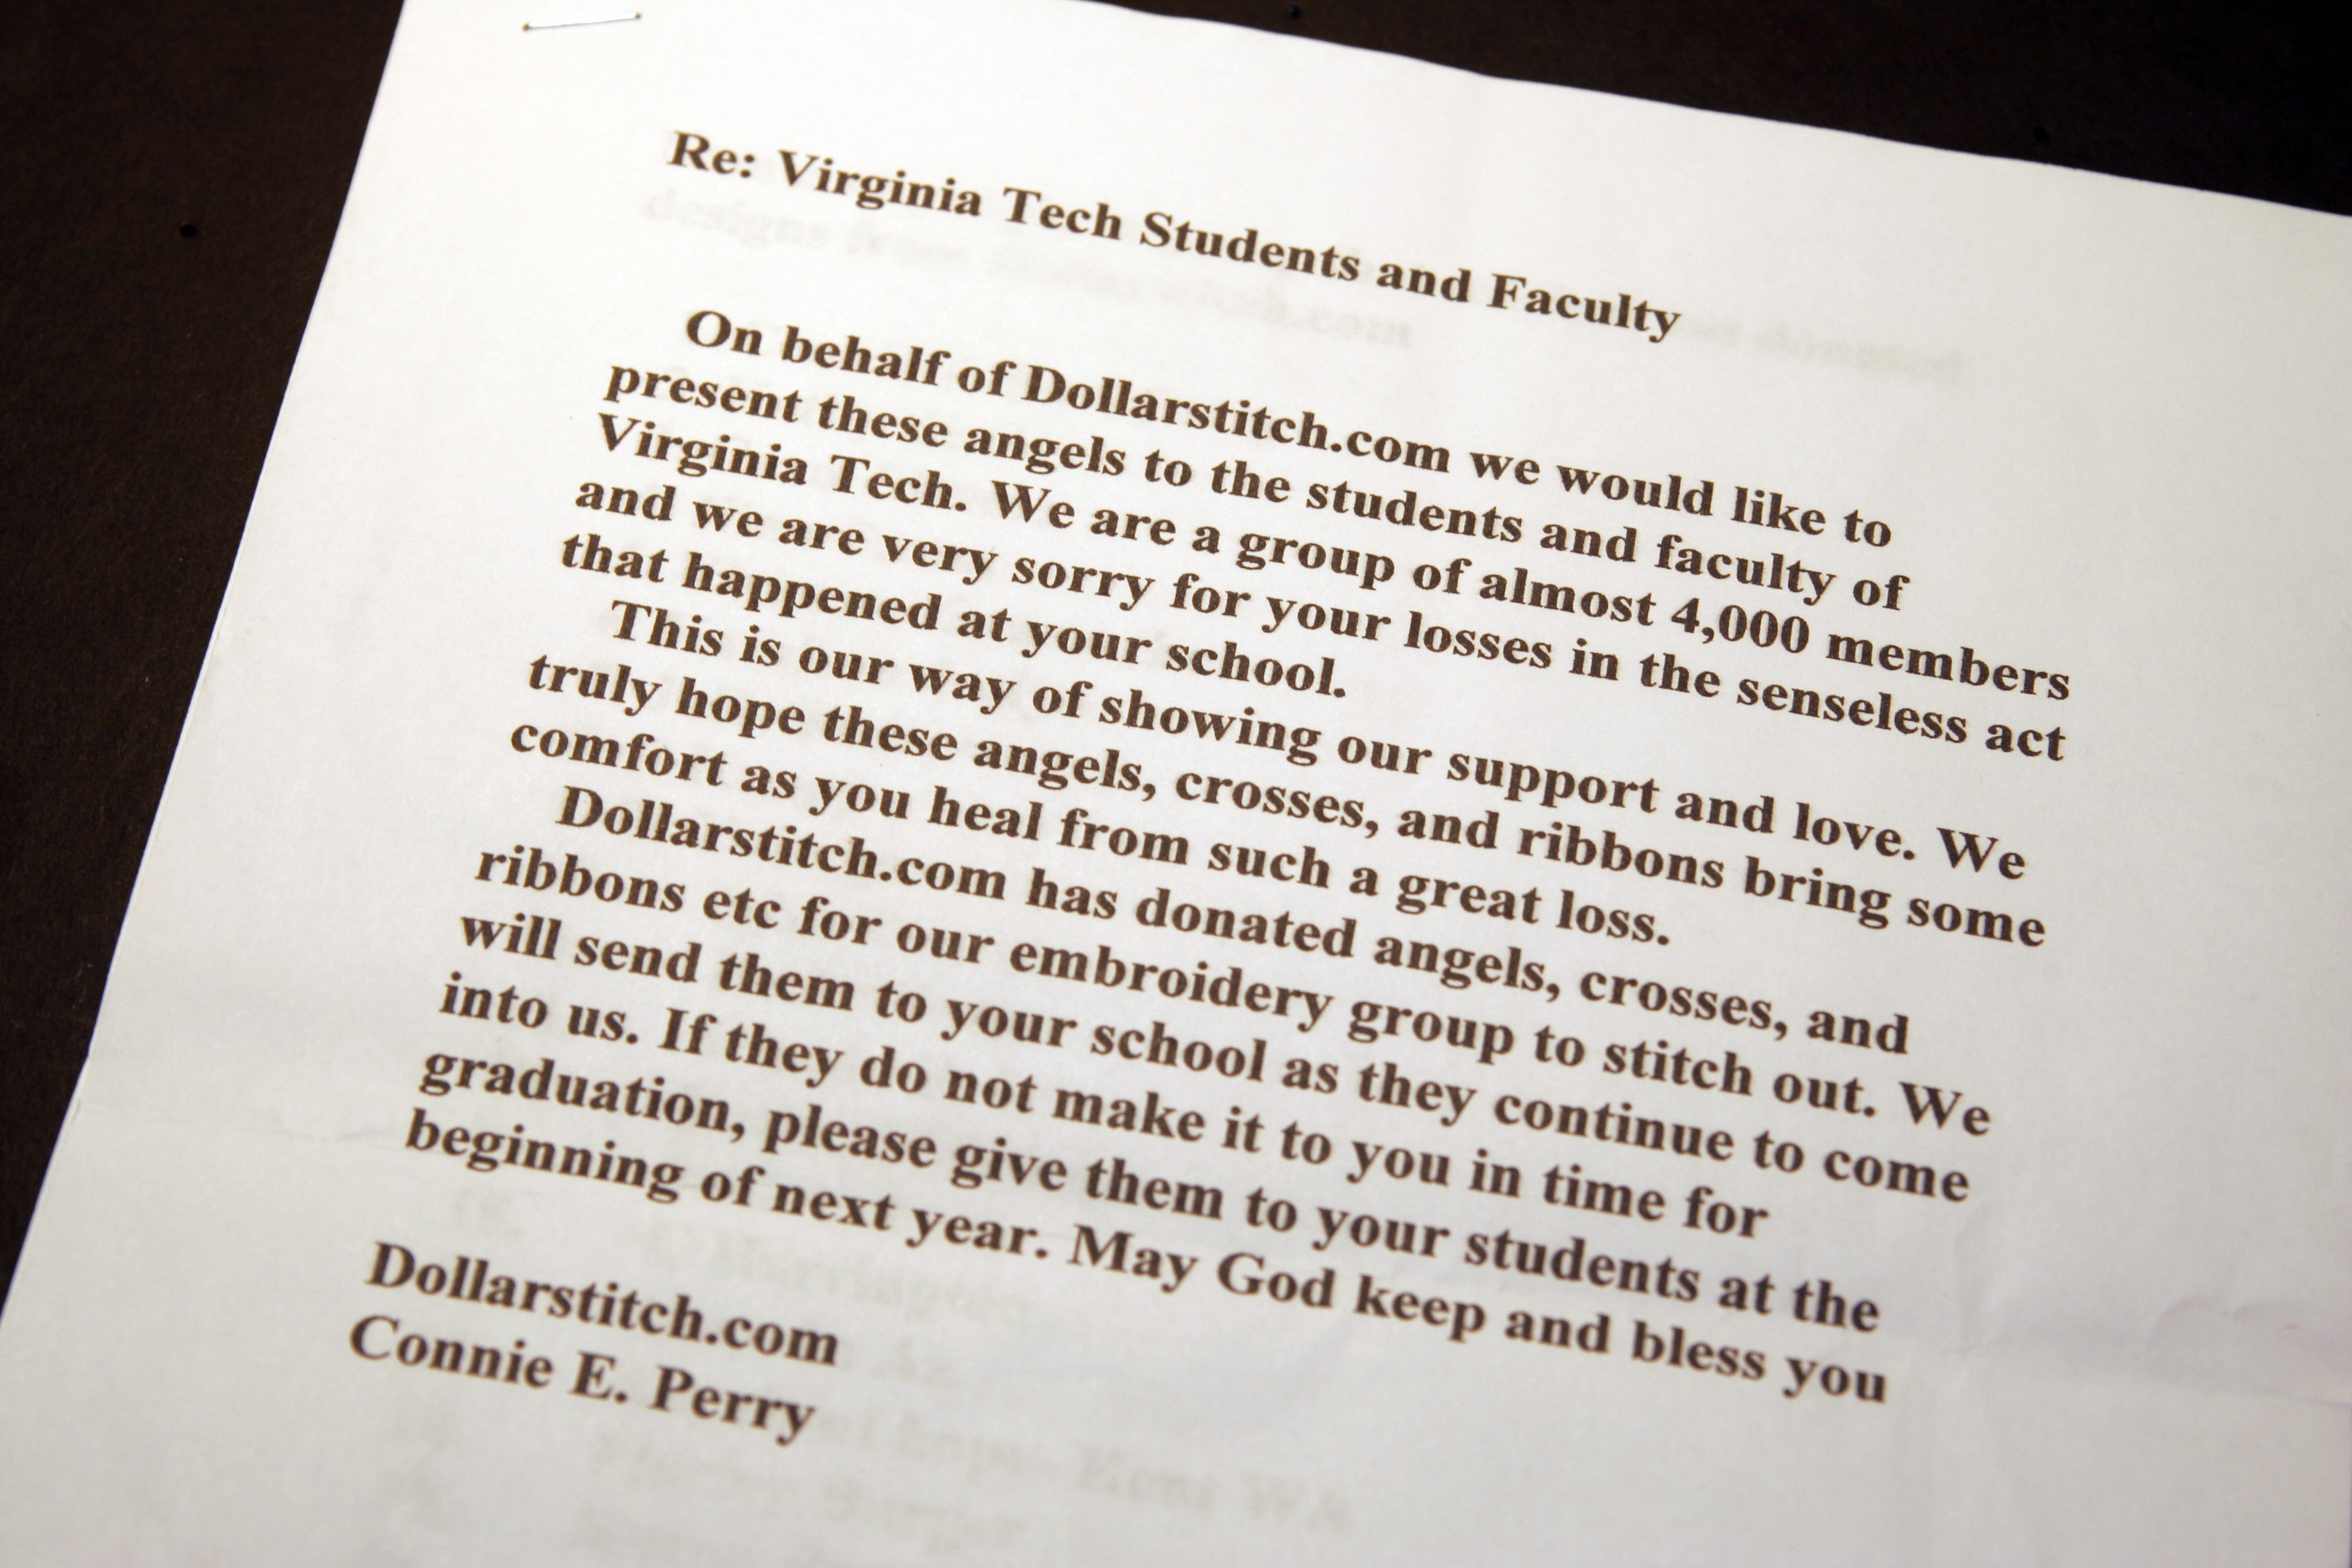 Re: Virginia Tech Students and Faculty
On behalf of Dollarstitch.com we would like to
present these angels to the students and faculty of
Virginia Tech. We are a group of almost 4,000 members
and we are very sorry for your losses in the senseless act
that happened at your school.
This is our way of showing our support and love. We
truly hope these angels, crosses, and ribbons bring some
comfort as you heal from such a great loss.
Dollarstitch.com has donated angels, crosses, and
ribbons etc for our embroidery group to stitch out. We
will send them to your school as they continue to come
into us. If they do not make it to you in time for
graduation, please give them to your students at the
beginning of next year. May God keep and bless you
Dollarstitch.com
Connie E. Perry